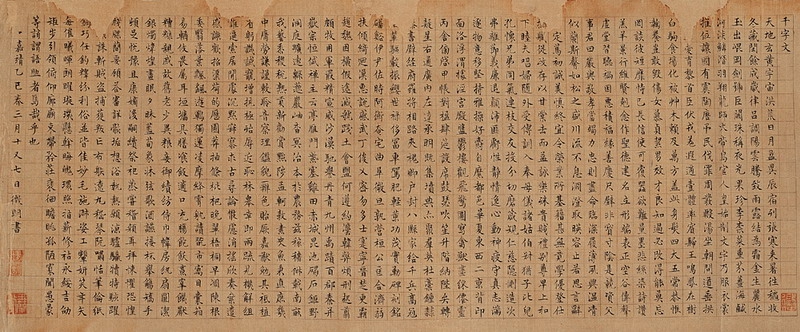 千字文
天地玄黃宇宙洪荒日月盈昃辰宿列張寒來暑往秋收
冬藏閏餘成歲律呂調陽雲騰致雨露結為霜金生麗水
玉出崑岡劍號巨闕珠稱夜光果珍李柰菜重芥薑海鹹
河淡鱗潛羽翔龍師火帝鳥官人皇始制文字乃服衣裳
推位讓國有虞陶唐弔民伐罪周發殷湯坐朝問道垂拱
平章愛育黎首臣伏戎羌遐邇壹體率賓歸王鳴鳳在樹
白駒食場化被草木賴及萬方蓋此身髮四大五常恭惟
鞠養豈敢毀傷女慕貞絜男效才良知過必改得能莫忘
罔談彼短靡恃己長信使可覆器欲難量墨悲絲染詩讚
羔羊景行維賢剋念作聖德建名立形端表正空谷傳聲
虛堂習聽禍因惡積福緣善慶尺璧非寶寸陰是競資父
事君曰嚴與敬孝當竭力忠則盡命臨深履薄夙興溫凊
似蘭斯馨如松之盛川流不息淵澄取映容止若思言辭
安定篤初誠美慎終宜令榮業所基籍甚無竟學優登仕
攝職從政存以甘棠去而益詠樂殊貴賤禮別尊卑上和
下睦夫唱婦隨外受傅訓入奉母儀諸姑伯叔猶子比兒
孔懷兄弟同氣連枝交友投分切磨箴規仁慈隱惻造次
弗離節義廉退顛沛匪虧性靜情逸心動神疲守真志滿
逐物意移堅持雅操好爵自縻都邑華夏東西二京背邙
面洛浮渭據涇宮殿盤鬱樓觀飛驚圖寫禽獸畫綵仙靈
丙舍傍啟甲帳對楹肆筵設席鼓瑟吹笙陞階納陛弁轉
疑星右通廣內左達承明既集墳典亦聚群英杜稾鍾隸
漆書壁經府羅將相路俠槐卿戶封八縣家給千兵高冠
陪輦驅轂振纓世祿侈富車駕肥輕策功茂實勒碑刻銘
磻溪伊尹佐時阿衡奄宅曲阜微旦孰營桓公匡合濟弱
扶傾綺迴漢惠說感武丁俊乂密勿多士寔寧晉楚更霸
趙魏困橫假途滅虢踐土會盟何遵約法韓弊煩刑起翦
頗牧用軍最精宣威沙漠馳譽丹青九州禹跡百郡秦并
嶽宗恒岱禪主云亭雁門紫塞雞田赤城昆池碣石鉅野
洞庭曠遠綿邈巖岫杳冥治本於農務茲稼穡俶載南畝
我藝黍稷稅熟貢新勸賞黜陟孟軻敦素史魚秉直庶幾
中庸勞謙謹敕聆音察理鑑貌辨色貽厥嘉猷勉其祗植
省躬譏誡寵增抗極殆辱近恥林皋幸即兩疏見機解組
誰逼索居閒處沉默寂寥求古尋論散慮逍遙欣奏累遣
慼謝歡招渠荷的歷園莽抽條枇杷晚翠梧桐早凋陳根
委翳落葉飄颻遊鵾獨運凌摩絳霄耽讀翫市寓目囊箱
易輶攸畏屬耳垣牆具膳餐飯適口充腸飽飫烹宰飢厭
糟糠親戚故舊老少異糧妾御績紡侍巾帷房紈扇圓潔
銀燭煒煌晝眠夕寐藍筍象床弦歌酒讌接杯舉觴矯手
頓足悅豫且康嫡後嗣續祭祀蒸嘗稽顙再拜悚懼恐惶
牋牒簡要顧答審詳骸垢想浴執熱願涼驢騾犢特駭躍
超驤誅斬賊盜捕獲叛亡布射遼丸嵇琴阮嘯恬筆倫紙
鈞巧任釣釋紛利俗並皆佳妙毛施淑姿工顰妍笑年矢
每催曦暉朗曜璇璣懸斡晦魄環照指薪修祜永綏吉劭
矩步引領俯仰廊廟束帶矜莊徘徊瞻眺孤陋寡聞愚蒙
等誚謂語助者焉哉乎也
嘉靖乙巳春三月十又七日徵明書